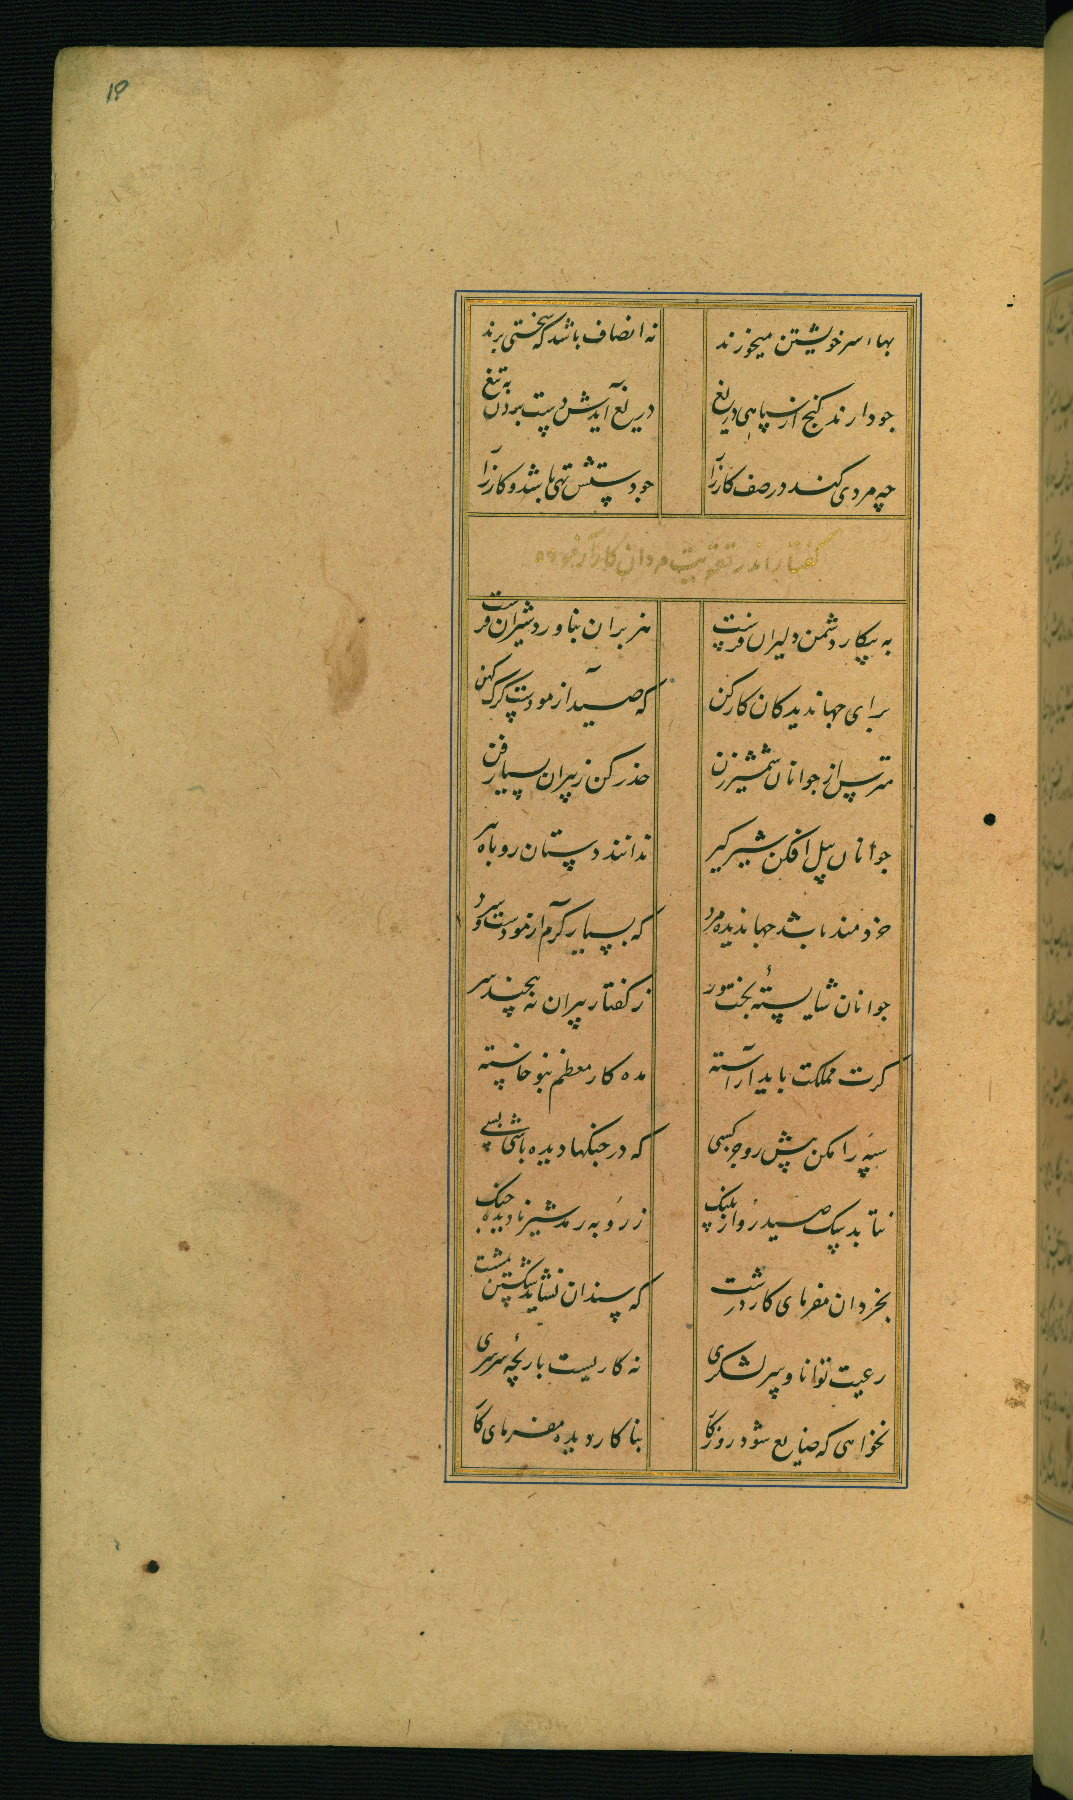 19
بهاء سر خویشتن میخورند نه انصاف باشد که سختی برند
جو دارند کنج از سپاهی دریغ دریغ آیدش دست بردن به تیغ
چه مردی کند در صف کارزار جو دستش تهی باشد و کارزار
کفتار اندر تقویت مردان کار آزموده
به پیکار دشمن دلیران فرست هزبران بناورد شیران فرست
برای جهاندیدکان کار کن که صید آزمودست کرک کهن
مترس از جوانان شمشیر زن حذر کن ز پیران بسیار فن
جوانان پیل افکن شیر کیر ندانند دستان روباه پیر
خردمند باشد جهاندیده مرد که بسیار کرم آزمودست و سرد
جوانان شایستهٔ بخت ور ز کفتار پیران نه پیچند سر
کرت مملکت باید آراسته مده کار معظم بنو خاسته
سپه را مکن پیش رو جز کسی که در جنکها دیده باشی بسی
نتابد سک صید رو از پلنک ز روبه رمد شیر نادیده جنک
بخردان مفرمای کار درشت که سندان نشاید شکستن بمشت
رعیت نوازی و سر لشکری نه کاریست بازیچهٔ سرسری
نخواهی که ضایع شود روزکار بنا کار دیده مفرمای کار